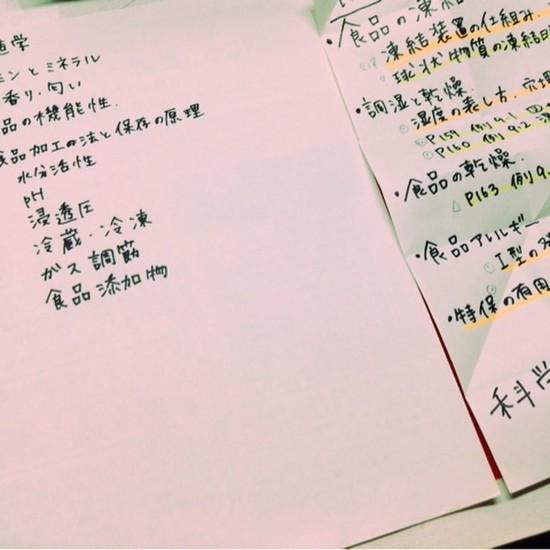 造学
ミンとミネラル
香り・匂い
品の機能性.
食品加工の法と保存の原理
水分活性
pH
浸透圧
冷蔵・冷凍
ガス調節
食品添加物
・食品の凍結
凍結装置の仕組み.
球状物質の凍結
・調湿と乾燥.
湿度の表し方.
P159 例9.1
P160 例9.2
・食品の乾燥.
P163 例9.
・食品アレルギー
I型の
・特保の有用
科学